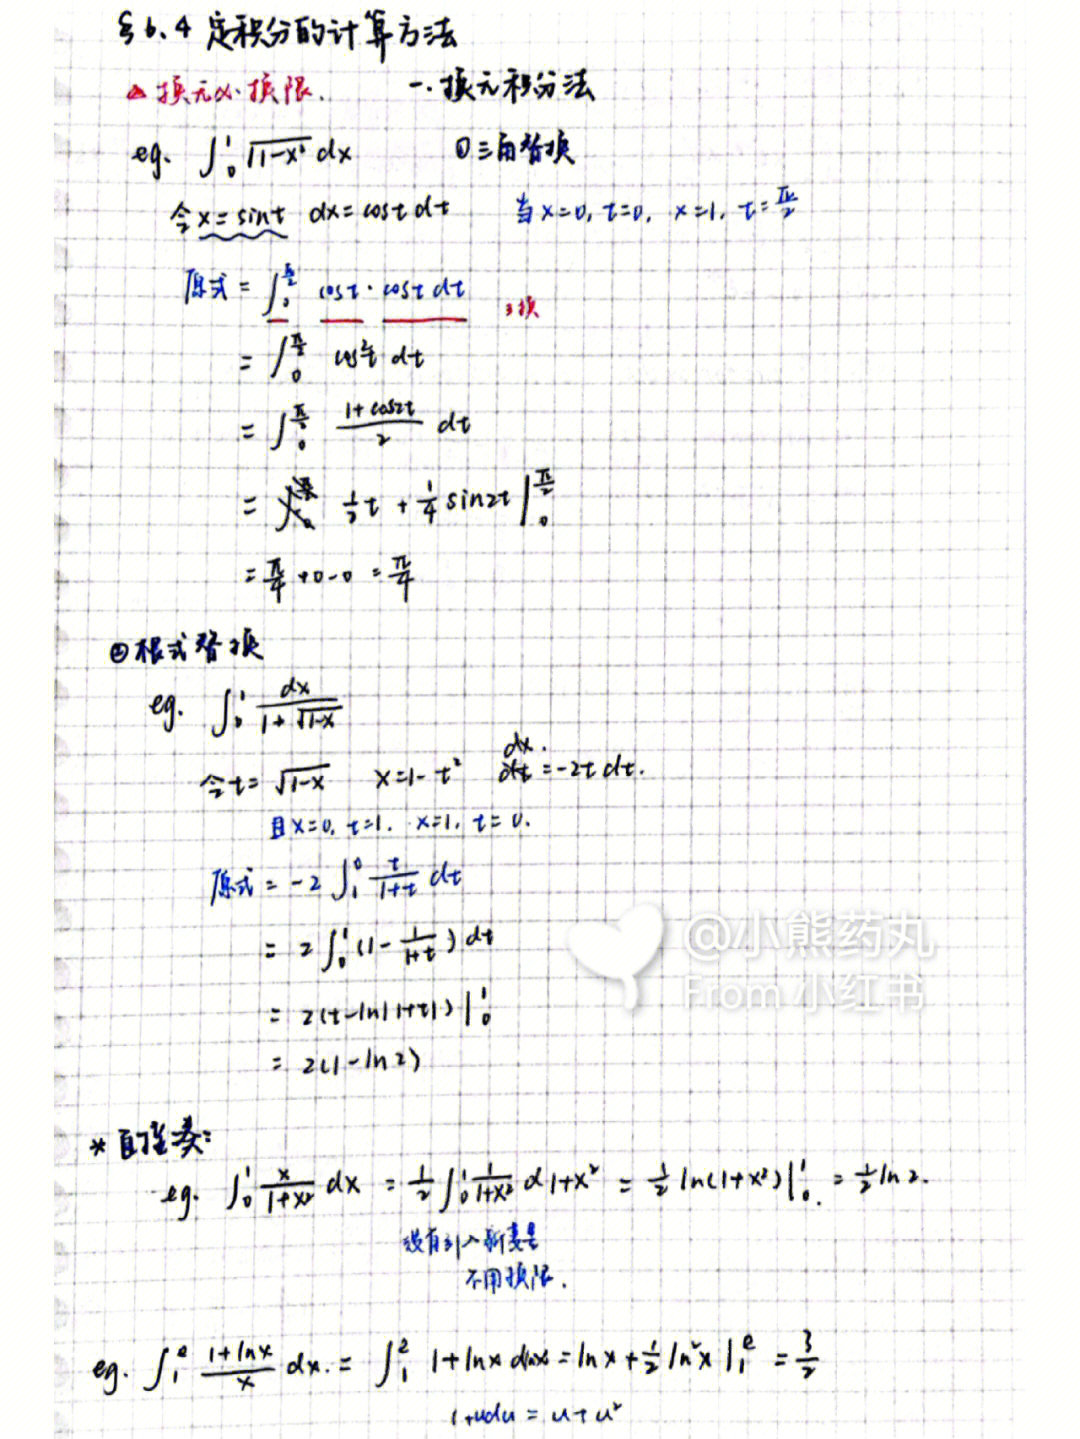 §6.4 定积分的计算方法
△ 换元必换限. 一.换元积分法
eg. ∫₀¹ √(1-x²) dx ①三角替换
令 x = sint dx = cost dt 当 x=0, t=0, x=1, t=π/2
原式 = ∫₀^(π/2) cost · cost dt 3换
= ∫₀^(π/2) cos²t dt
= ∫₀^(π/2) (1+cos2t)/2 dt
= 1/2 t + 1/4 sin2t |₀^(π/2)
= π/4 +0-0 = π/4
②根式替换
eg. ∫₀¹ dx/(1+√(1-x))
令 t = √(1-x) x=1-t² dx = -2t dt.
且 x=0, t=1. x=1, t=0.
原式 = -2 ∫₁⁰ t/(1+t) dt
= 2 ∫₀¹ (1 - 1/(1+t)) dt
= 2(t-ln|1+t|) |₀¹
= 2(1-ln2)
@小熊药丸
From 小红书
* 直接凑:
eg. ∫₀¹ x/(1+x²) dx = 1/2 ∫₀¹ 1/(1+x²) d 1+x² = 1/2 ln(1+x²) |₀¹ = 1/2 ln 2.
没有引入新变量
不用换限.
eg. ∫₁^e (1+lnx)/x dx = ∫₁^e 1+lnx dlnx = ln x + 1/2 ln²x |₁^e = 3/2
1+udu = u+u²